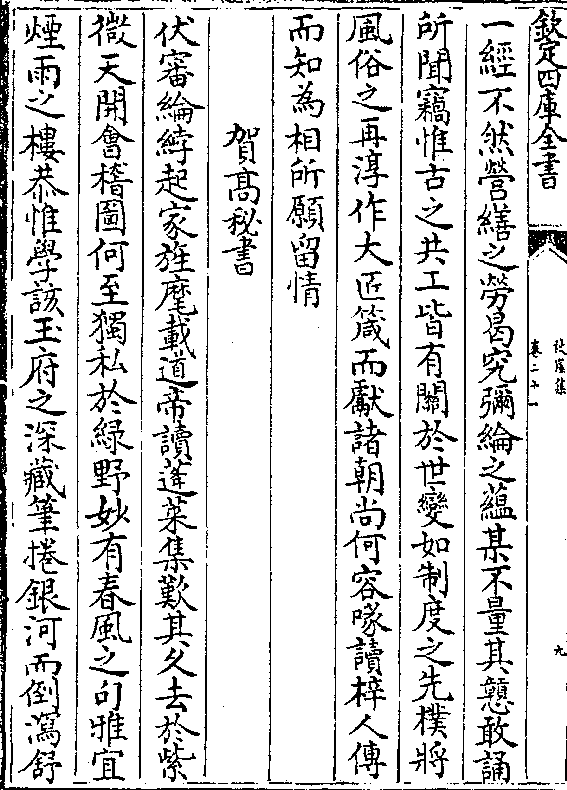 欽定四庫全書
卷二十一
九
一經不然營繕之勞曷究彌綸之蘊某不量其戇敢誦
所聞竊惟古之共工皆有關於世變如制度之先樸將
風俗之再淳作大匠箴而獻諸朝尚何容喙讀梓人傳
而知為相所願留情
賀高秘書
伏審綸綍起家旌麾載道帝讀蓬萊集歎其久去於紫
微天開會稽圖何至獨私於緑野妙有春風之句雅宜
煙雨之樓恭惟學該玉府之深藏筆捲銀河而倒瀉舒